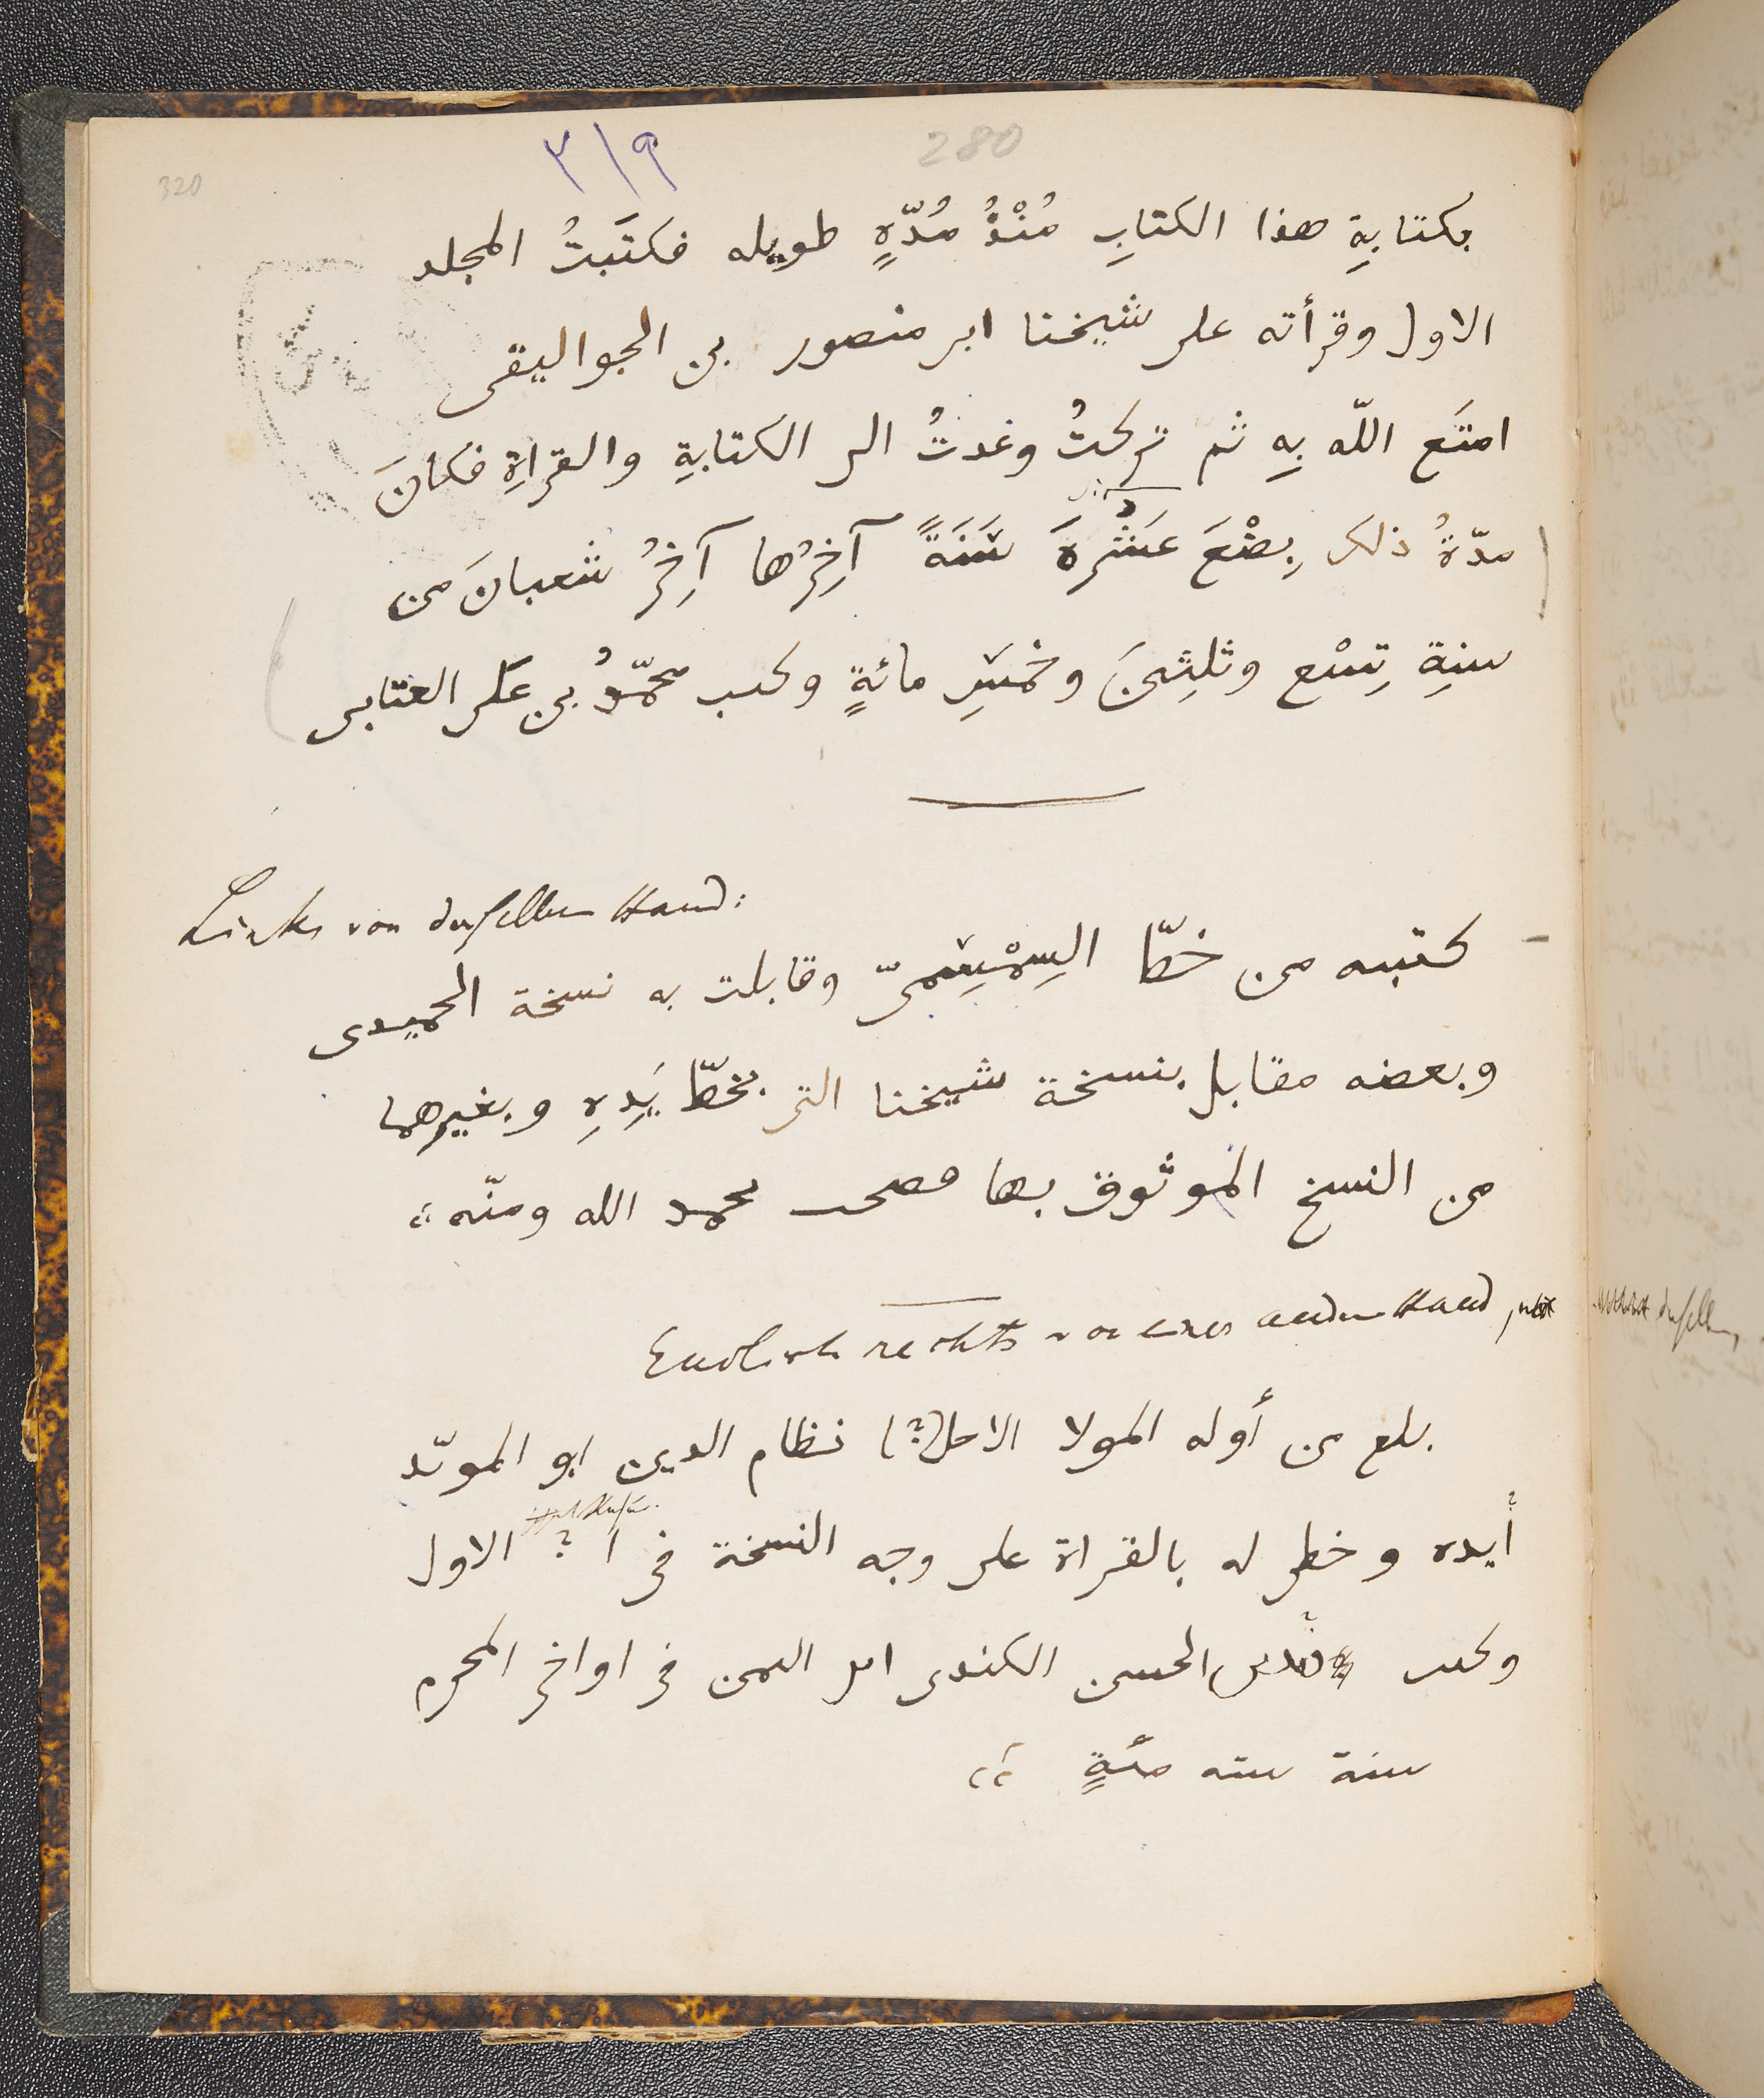 ٣١٩
280
320
بكتابةِ هذا الكتابِ مُنْذُ مُدّةٍ طويله فكتَبتُ المجلد
الاول وقرأته على شيخنا ابى منصور بن الجواليقى
امتَع اللّه بِه ثم تركتُ وعدتُ الى الكتابةِ والقراةِ فكانَ
مدّةُ ذلك بِضْعَ عَشْرةَ سَنَةً آخِرُها آخِرُ شعبانَ من
سنةِ تِسْع وثلثينَ وخمسِ مائةٍ وكتب محمّدُ بن على العتابى
Links von derselben Hand:
كتبته من خطّ السِمْسِمىّ وقابلت به نسخة الحميدى
وبعضه مقابل بنسخة شيخنا التى بخطّ يَدِهِ وبغيرهما
من النسخ الموثوق بها فصحـ بحمد الله ومنّه
Endlich rechts von einer andern Hand,
بلع من أوله المولا الاحل(؟) نظام الدين ابو الموىّد
أيده وخطى له بالقراة على وجه النسخة فى ا ؟ الاول
وكتب الحسن الكندى ابو اليمن فى اواخر المحرم
سنة سته مئةٍ